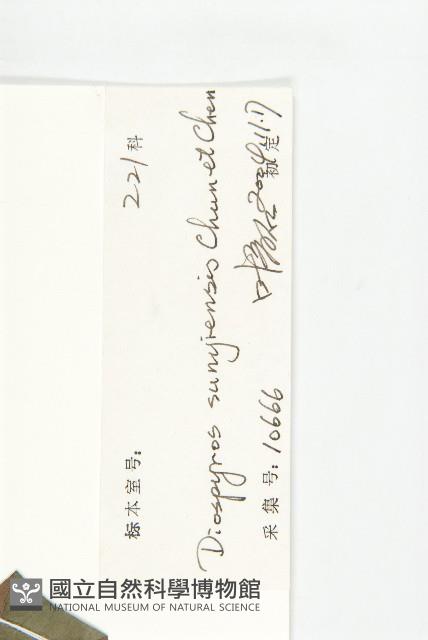 标本室号: 221科
Diospyros sunyiensis Chun et Chen
采集号: 10666 2004.11.17 初定
國立自然科學博物館
NATIONAL MUSEUM OF NATURAL SCIENCE